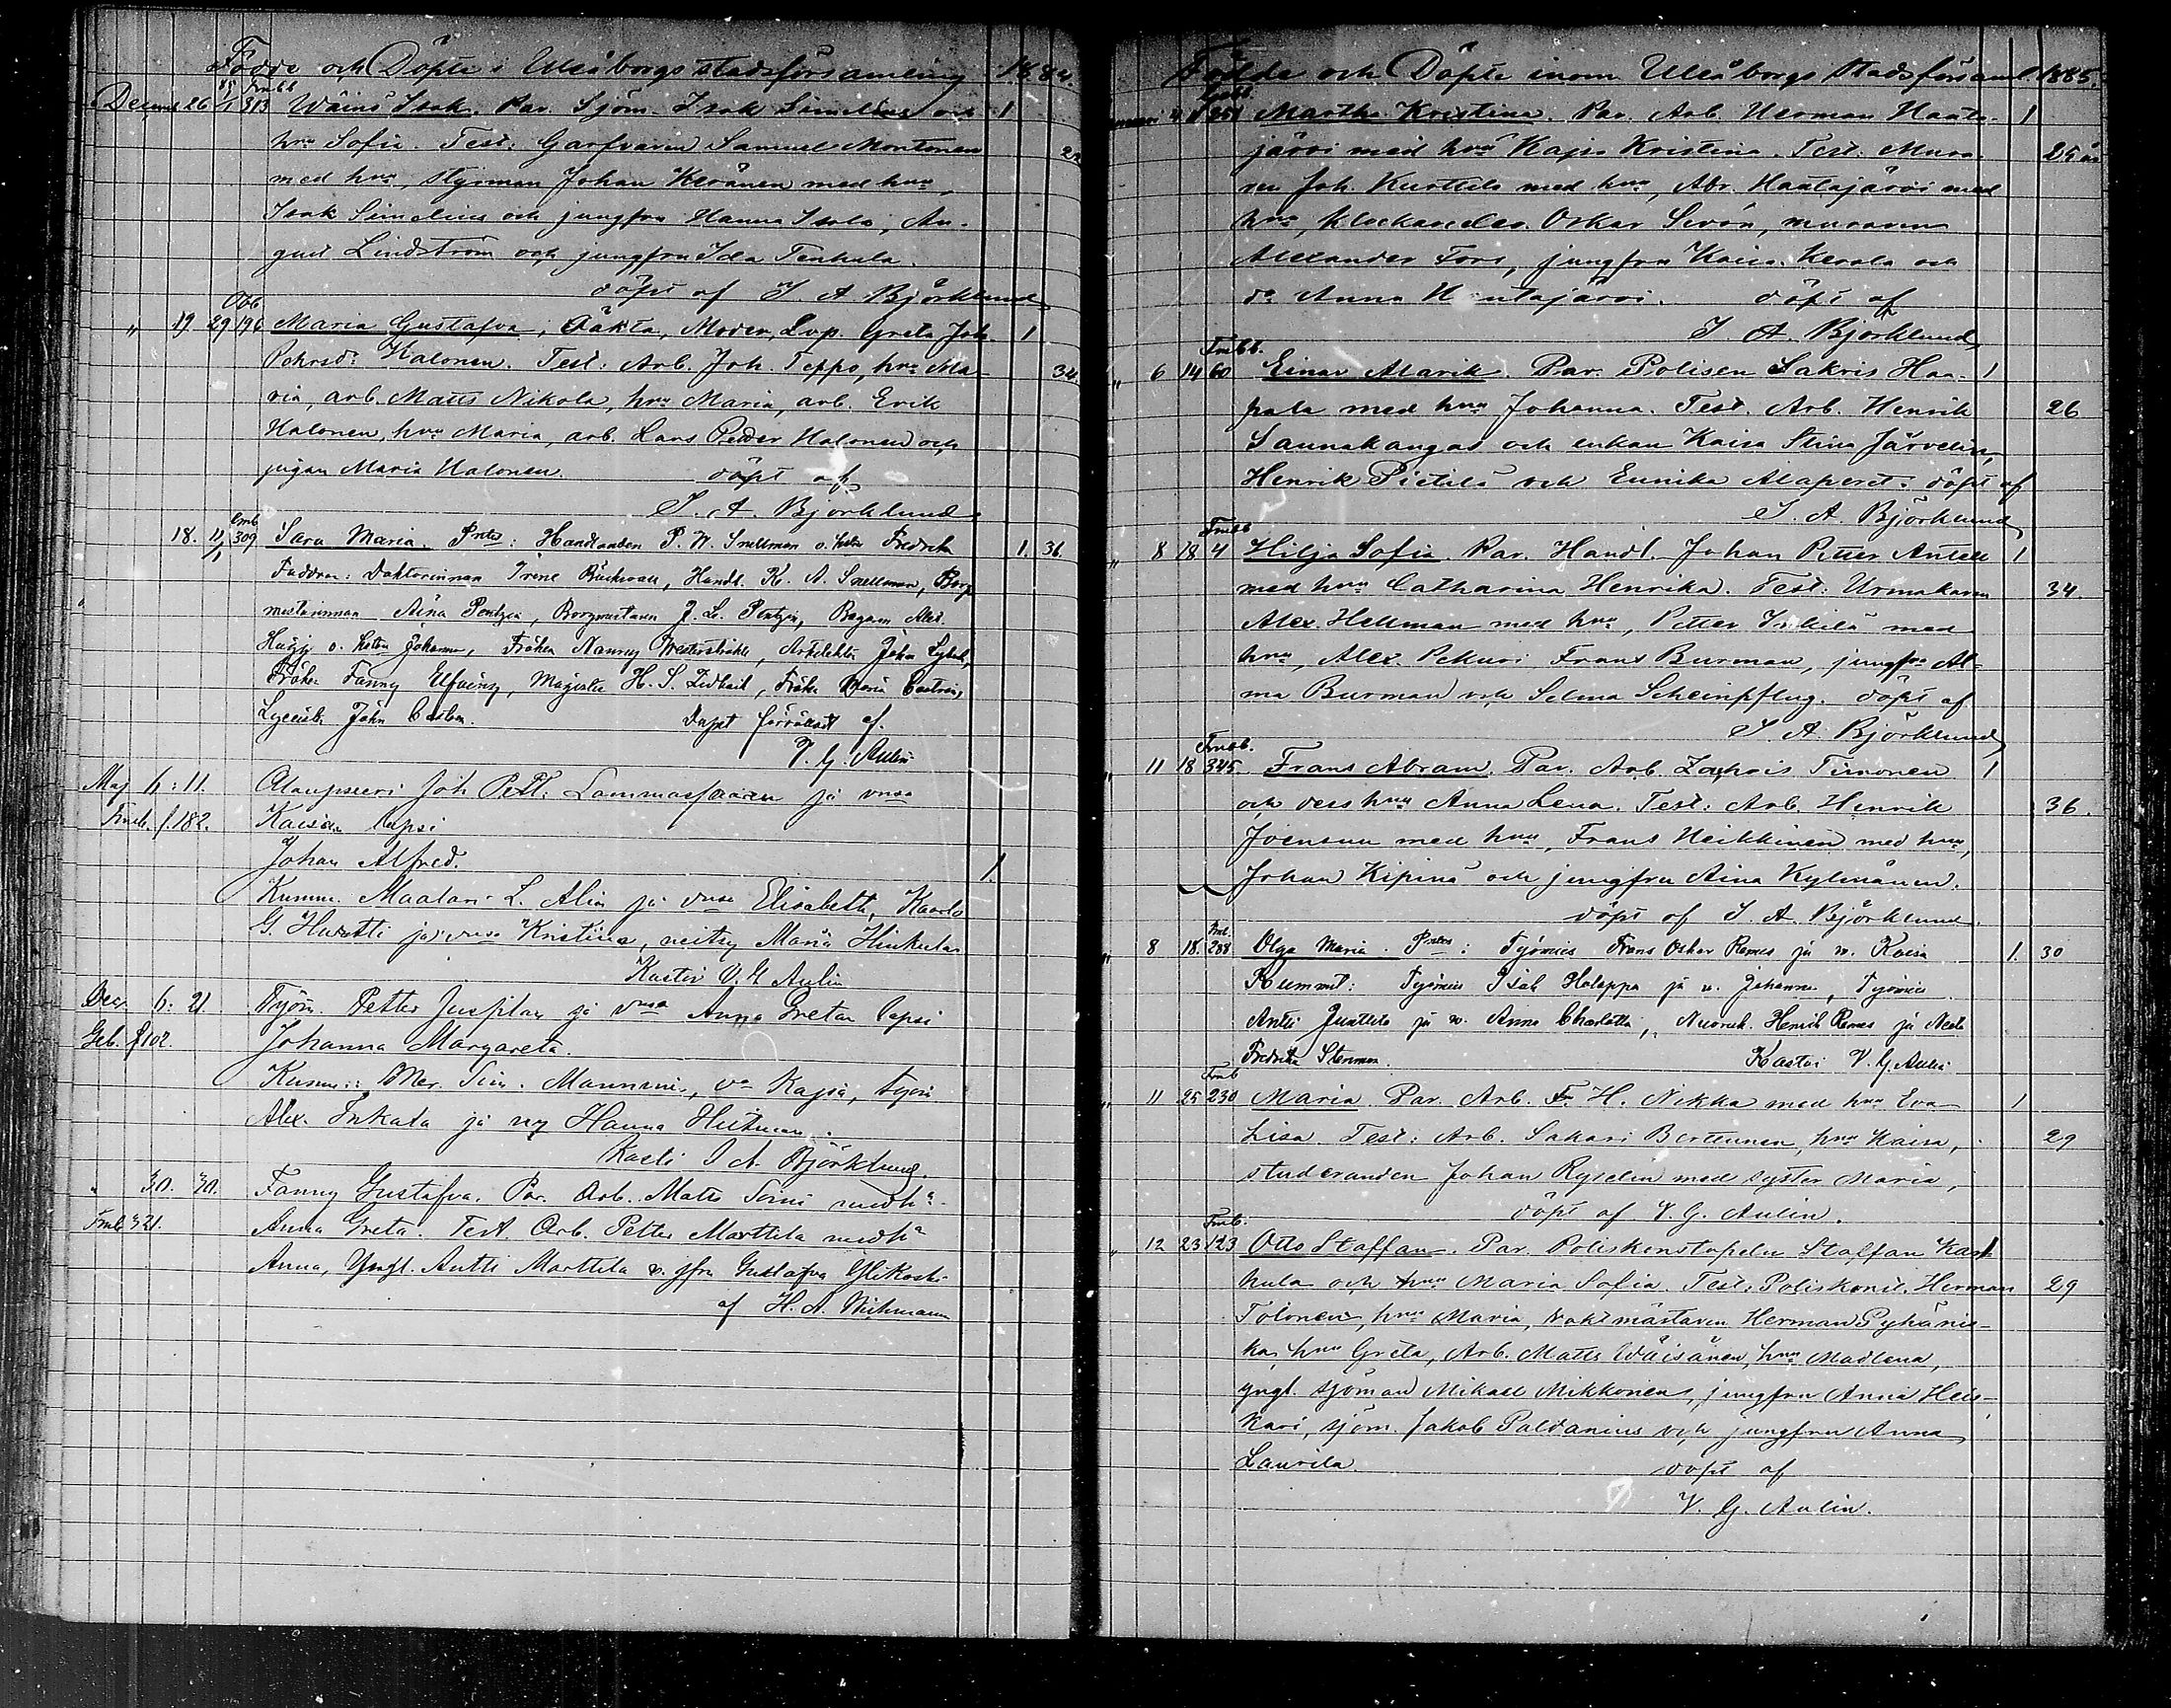 Födde och Döpte i Uleåborgs stadsförsamling 1884.
26 1 313 Wäinö Isak. Par. Sjöm. Isak Simelius och 1
hru Sofia. Test: Garfvaren Samuel Montonen
med hru, styrman Johan Keränen med hru,
Isak Simelius och jungfru Hanna Isola, Au-
gust Lindström och jungfru Ida Tenhula.
döpt af I. A. Björklund
" 19 29 196 Maria Gustafva, Oäkta, Moder, Lösp. Greta Joh. 1
Halonen. Test: Arb. Joh. Teppo, hru Ma- 34.
ria, arb. Matts Nikola, hru Maria, arb. Erik
Halonen, hru Maria, arb. Lars Petter Halonen och
pigan Maria Halonen. döpt af
I. A. Björklund
18. 11/1 309 Sara Maria. : Handlanden P. W. Snellman o. Fredrika 1. 36.
Faddrar: Doktorinnan Irene, Handl. K. A. Snellman, Borg-
mestarinnan Aina Pentzin, Borgmestaren J. L. Pentzin, Bagaren Alex.
o. Johanna, Fröken Nanny Westerstråhle, Arkitekten John
Fröken Fanny Elfving, Magister H. S. Zidbäck, Fröken Maria Castrén,
John Castrén. Dopet förrättadt af.
V. G. Aulin
Maj 6: 11. Joh. Pett. Lammasaaren ja vmsa
f. 182. Kaisan lapsi
Johan Alfred. 1.
Kumm. Maalari L. Alin ja vmsa Elisabeth, Kaarlo
G. Huratti ja vmsa Kristina, neitsy Maria Hinkula
Kastoi V. G. Aulin
Dec. 6: 21. Työm. Petter Juspilan ja vmsa Anna Gretan lapsi
f 102. Johanna Margareta.
Kumm:: Mer. Sim. Manninen, va Kajsa, työm
Alex. Inkala ja ny Hanna Huttunen.
Kasti I. A. Björklund.
" 30. 30. Fanny Gustafva. Par. Arb. Matts Soini med ha
321. Anna Greta. Test. Arb. Petter Marttila med ha
Anna, Yngl. Antti Marttila o. jfru Gustafva
af H. A. Wichmann
Födde och Döpte inom Uleåborgs stadsförsaml. 1885.
4 251 Martha Kristina. Par. Arb. Herman Hauta- 1
järvi med hru Kajsa Kristina. Test: Mura- 25
ren Joh. Kurttila med hru, Abr. Hautajärvi med
hru, klockareelev. Oskar Sivón, muraren
Alexander Fors, jungfru Kaisa Kerola och
do Anna Hautajärvi. döpt af
I. A. Björklund,
" 6 14 60 Einar Alarik. Par. Polisen Sakris Haa- 1
pala med hru Johanna. Test. Arb. Henrik 26
Saunakangas och enkan Kaisa Stina Järvelin,
Henrik Pietilä och Eunika. döpt af
I. A. Björklund
" 8 18 4 Hilja Sofia. Par. Handl. Johan Petter Antell 1
med hru Catharina Henrika. Test: Urmakaren 34.
Alex. Hellman med hru, Petter med
hru, Alex. Pekuri Frans Burman, jungfru Al-
ma Burman och Selma Scheinpflug. döpt af
I. A. Björklund,
" 11 18 345. Frans Abram. Par. Arb. Zachris Timonen 1
och dess hru Anna Lena. Test: Arb. Henrik 36.
Joensuu med hru, Frans Heikkinen med hru,
Johan Kipinä och jungfru Aina Kylmänen.
döpt af I. A. Björklund.
" 8 18. 288 Olga Maria. : Työmies Frans Oskar Remes ja w. Kaisa 1. 30
Kummit: Työmies Isak Holappa ja w. Johanna, Työmies
Antti Junttila ja w. Anna Charlotta, Nuoruk. Henrik Remes ja
Fredrika Stenman. Kastoi V. G. Aulin
" 11 25 230 Maria. Par. Arb. F. H. Nikka med hru Eva 1
Lisa. Test: Arb. Sakari, hru Kaisa, 29
studeranden Johan Rydelin med syster Maria,
döpt af V. G. Aulin.
" 12 23 123 Otto Staffan. Par. Poliskonstapeln Staffan 1
och hru Maria Sofia. Test: Poliskonst. Herman 29
Tolonen, hru Maria, vaktmästaren Herman Pyhänis-
ka, hru Greta, Arb. Matts Wäisänen, hru Madlena,
yngl. sjöman Mikael Mikkonen, jungfru Anna Hete-
kari, sjöm. Jakob Paldanius och jungfru Anna
Laurila. döpt af
V. G. Aulin.